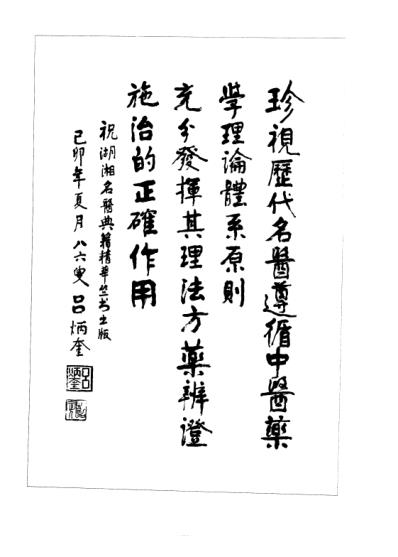 珍視歷代名醫遵循中醫藥
學理論體系原則
充分發揮其理法方藥辨證
施治的正確作用
祝湖湘名醫典籍精華丛书出版
己卯年夏月八六叟吕炳奎
吕炳奎